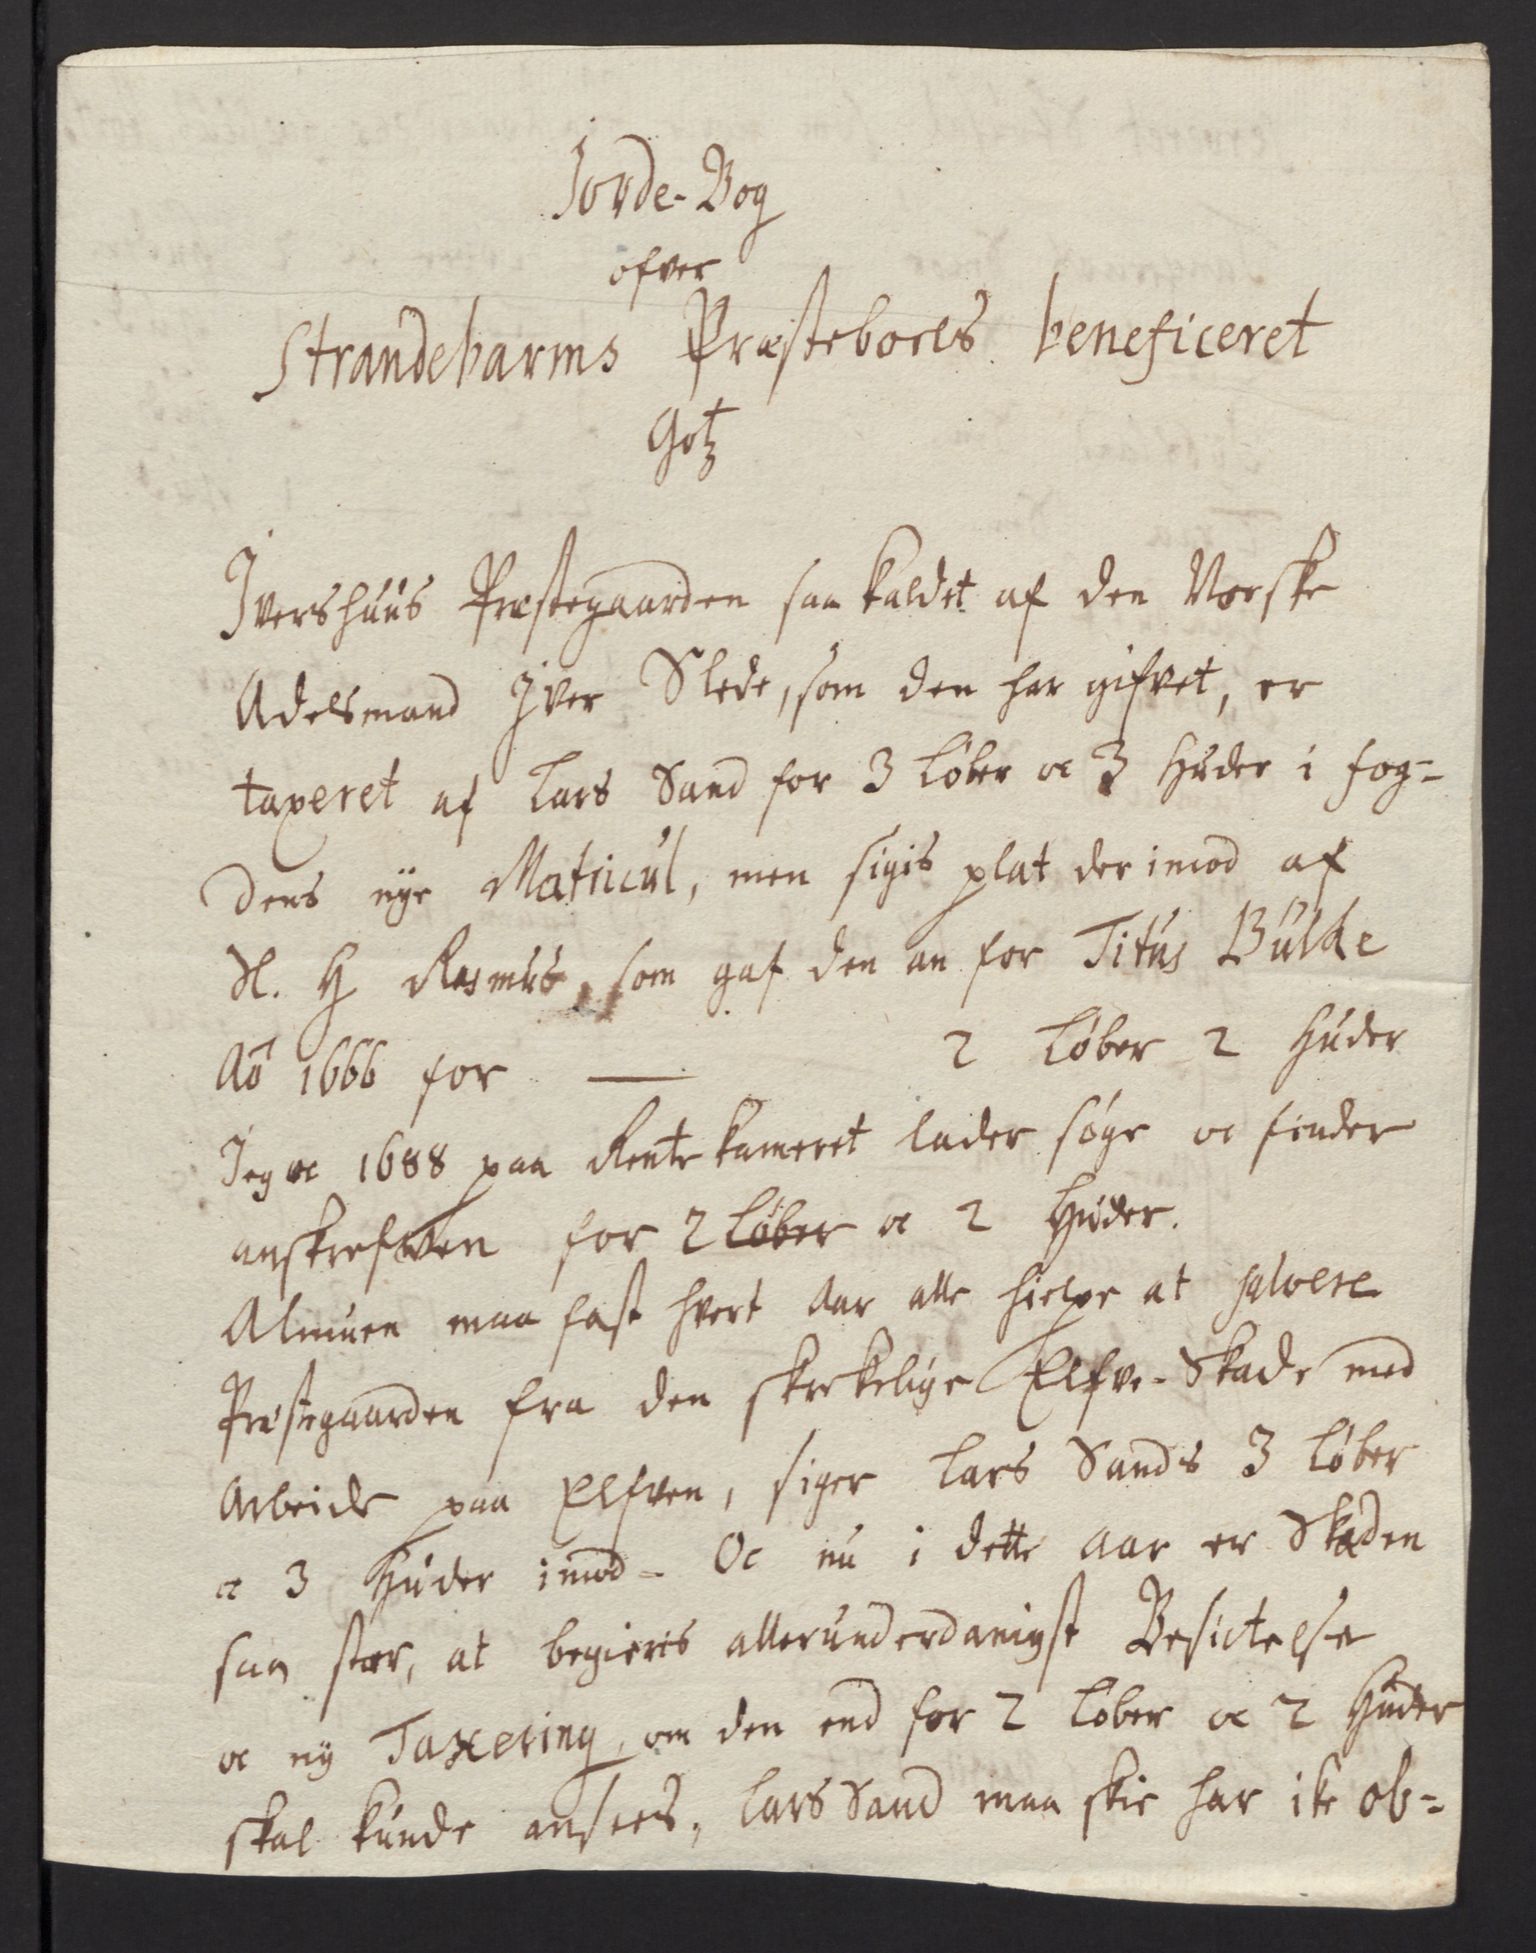 Jorde-Bog
ofver
Strandebarms Præsteboels beneficeret
Gotz
Ivershuus Præstegaarden saa kaldet af den Norske
Adelsmand Iver Slede, som den har gifvet, er
taxeret af Lars Sand for 3 Løber oc 3 Huder i fog-
dens nye Matricul, men sigis plat der imod af
Sl. H Rasmus, som gaf den an for Titus Bulche
Aō 1666 for — 2 Løber 2 Huder
Jeg oc 1688 paa Rentekameret lader søge oc finder
anskrefven for 2 Løber oc 2 Huder.
Almuen maa fast hvert Aar alle hielpe at salvere
Præstegaarden fra den skrekelige Elfve-Skade med
Arbeide paa Elfven, siger Lars Sands 3 Løber
oc 3 Huder imod - Oc nu i dette aar er Skaden
saa stor, at begieris allerunderdanigst Besictelse
oc ny Taxering, om den end for 2 Løber oc 2 Huder
skal kunde ansees, Lars Sand maa skie har ike ob-